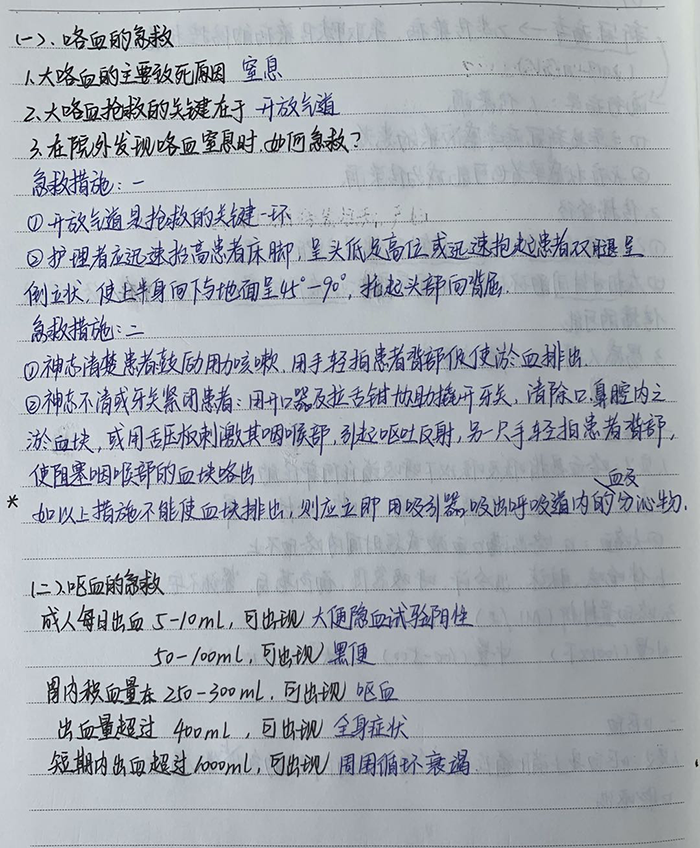 (一)、咯血的急救
1.大咯血的主要致死原因 窒息
2.大咯血抢救的关键在于 开放气道
3.在院外发现咯血窒息时,如何急救?
急救措施:一
①开放气道是抢救的关键一环
②护理者应迅速抬高患者床脚,呈头低足高位或迅速抱起患者双腿呈
倒立状,使上半身向下与地面呈45°-90°,托起头部向背屈.
急救措施:二
①神志清楚患者鼓励用力咳嗽,用手轻拍患者背部促使淤血排出.
②神志不清或牙关紧闭患者:用开口器及拉舌钳协助撬开牙关,清除口.鼻腔内之
淤血块,或用舌压板刺激其咽喉部,引起呕吐反射,另一只手轻拍患者背部,
使阻塞咽喉部的血块咯出
* 如以上措施不能使血块排出,则应立即用吸引器吸出呼吸道内的血及分泌物.
(二).呕血的急救
成人每日出血 5-10ml,可出现 大便隐血试验阳性
50-100ml,可出现 黑便
胃内积血量在 250-300ml,可出现 呕血
出血量超过 400ml,可出现 全身症状
短期内出血超过1000ml,可出现 周围循环衰竭